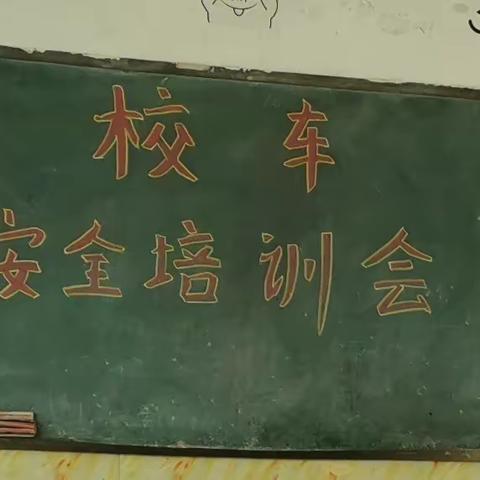 校车
安全培训会